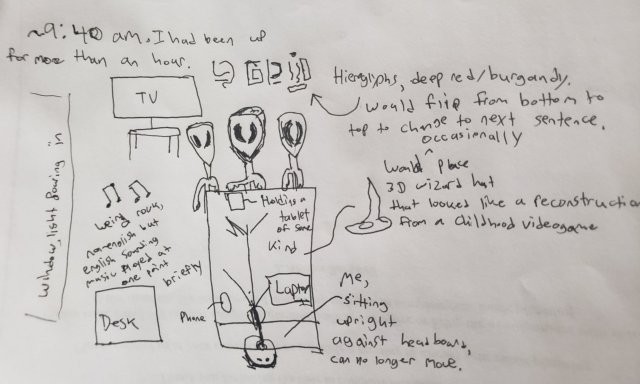 ~9:40 am. I had been up
for more than an hour.
TV
Hieroglyphs, deep red/burgandy.
Would flip from bottom to
top to change to next sentence.
occasionally
Would place
3D wizard hat
that looked like a reconstruction
from a childhood videogame
Window, light pouring in
weird rock,
non-english but
english sounding
music played at
one point
briefly
Holding a
tablet of some
kind
Laptop
Phone
Desk
Me,
sitting
upright
against headboard,
can no longer move.